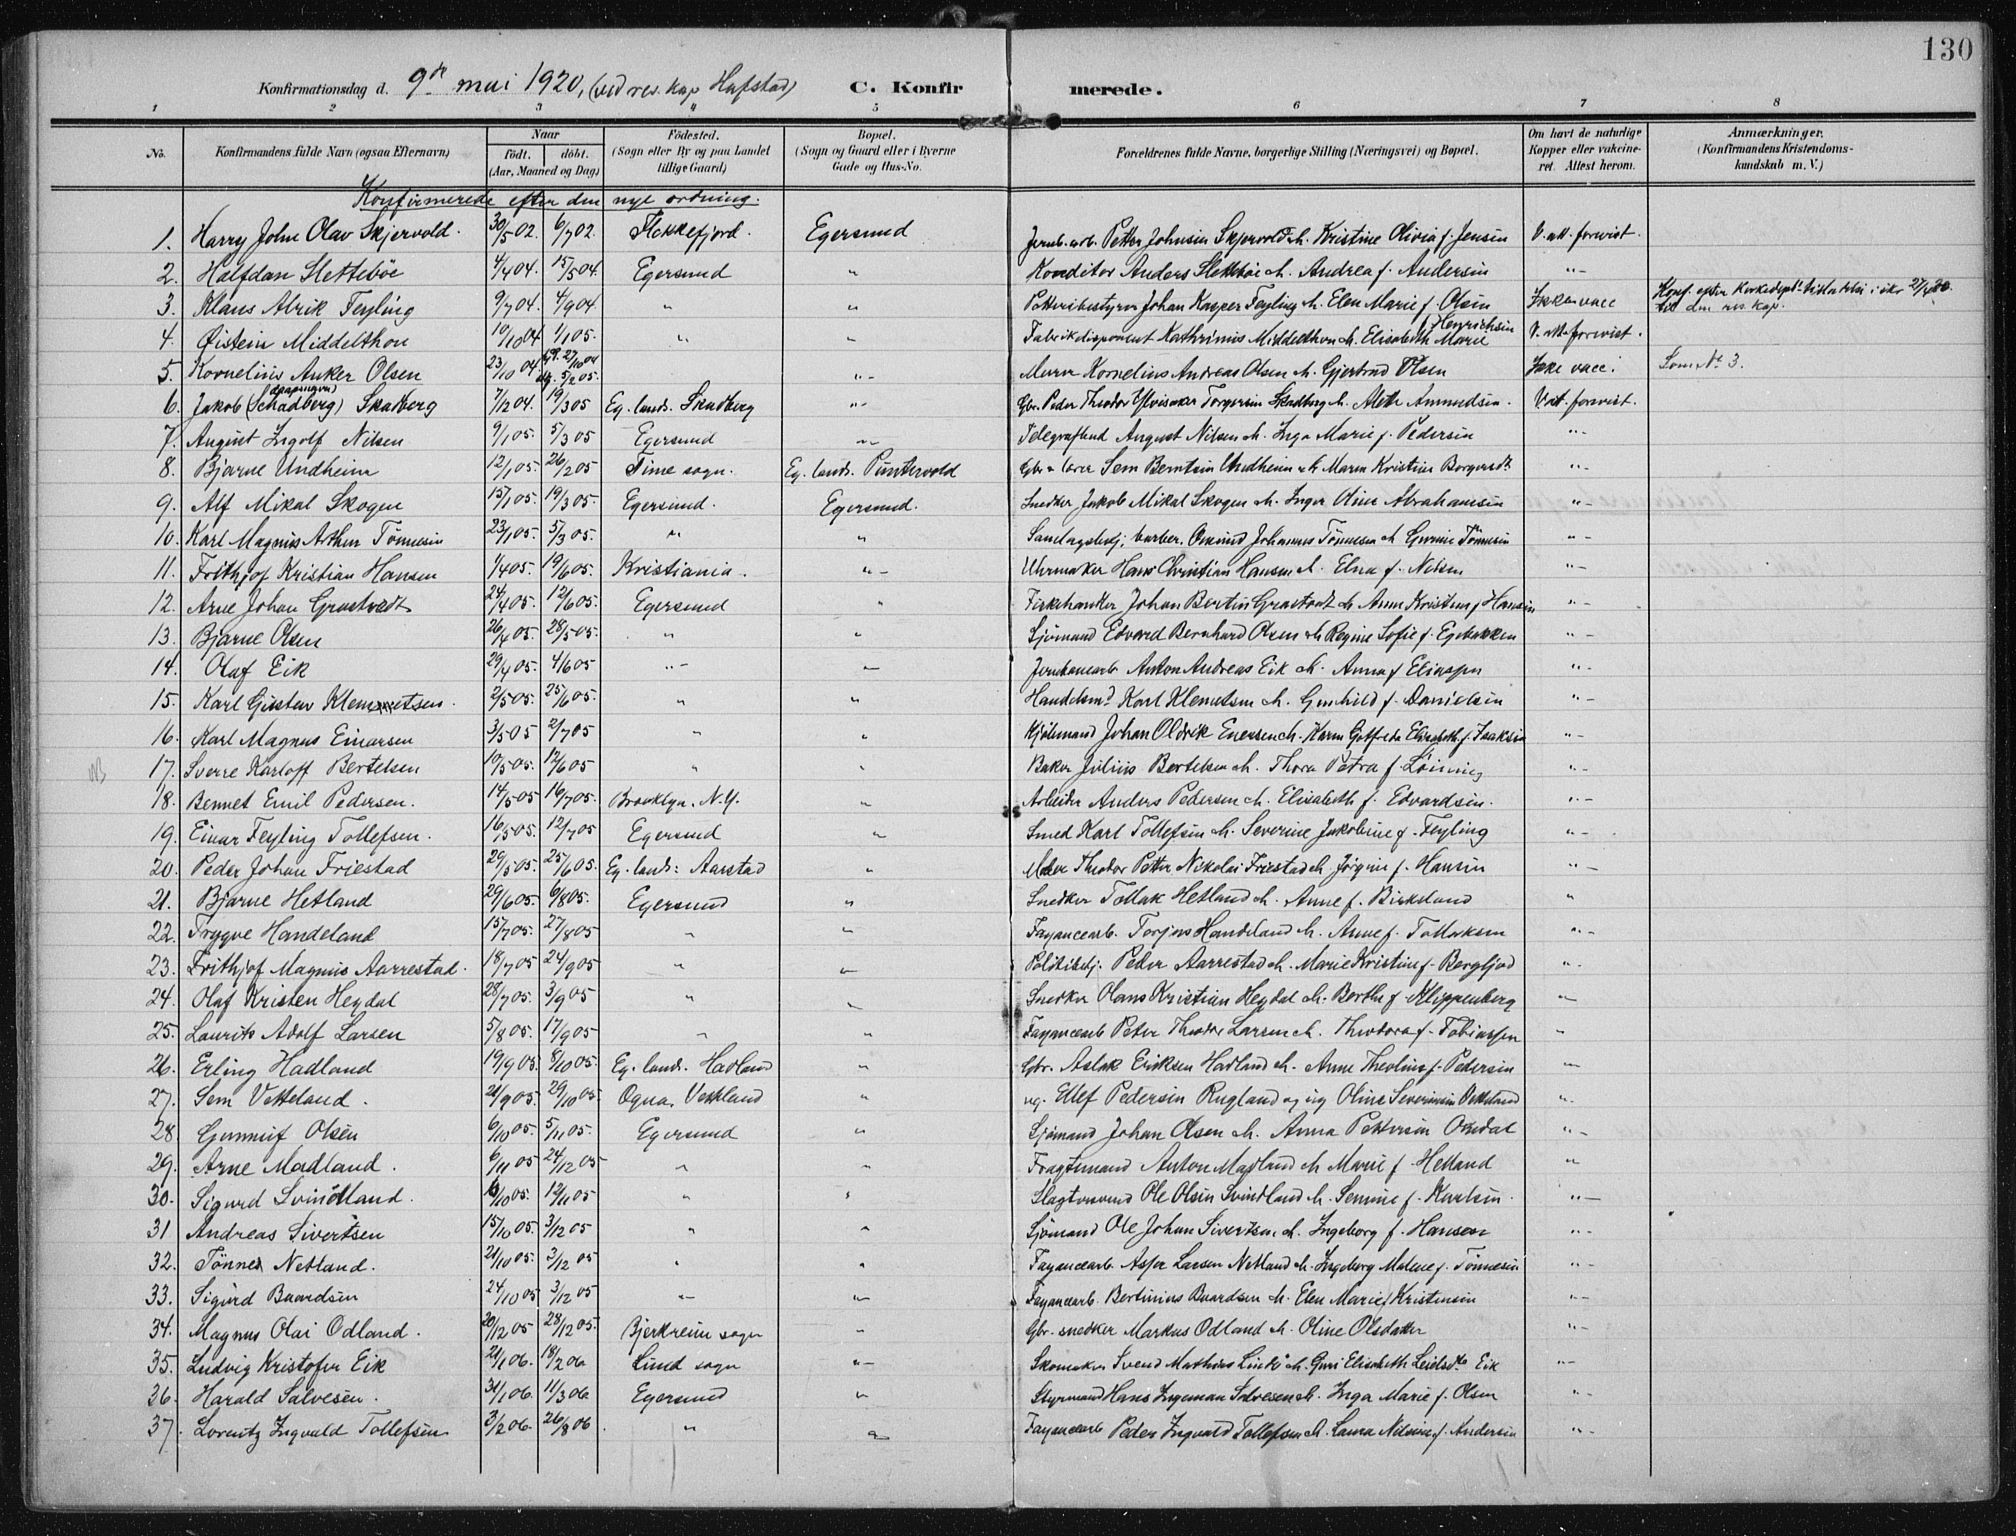 130
Konfirmationsdag d. 9de mai 1920, (ved res. kap. Hafstad) C. Konfirmerede.
1 2 3 4 5 6 7 8
No. Konfirmandens fulde Navn (ogsaa Efternavn) Naar födt. döbt. (Aar, Maaned og Dag) Födested. (Sogn eller By og paa Landet tillige Gaard) Bopæl. (Sogn og Gaard eller i Byerne Gade og Hus-No. Forældrenes fulde Navne, borgerlige Stilling (Næringsvei) og Bopæl. Om havt de naturlige Kopper eller vakcineret. Attest herom. Anmærkninger. (Konfirmandens Kristendomskundskab m. V.)
Konfirmerede efter den nye ordning.
1. Harry John Olav Skjervold. 30/5 02. 6/7 02. Flekkefjord. Egersund Jernb. arb. Petter Johnsen Skjervold & Kristine Olivia f. Jensen V. att. forevist.
2. Halfdan Slettebøe 4/4 04. 15/5 04. Egersund " Konditor Anders Slettebøe & Andrea f. Andersen "-
3. Klaus Alrik Feyling 9/7 04. 4/9 04. " " Johan Kasper Feyling & Elen Marie f. Olsen Ikke vacc Konf. efter
4. Øistein Middelthon 10/10 04 1/1 05. " " Fabrikdisponent Kathrinus Middelthon & Elisabeth Marie f. Henrichsen V. att. forevist.
5. Kornelius Anker Olsen 23/10 04 27/10 04 5/2 05. " "- Murer Kornelius Andreas Olsen & Gjertrud Olsen Ikke vacc. Som No 3.
6. Jakob (Schadberg) (døpenavn) Skadberg 7/12 04. 19/3 05 Eg. lands. Skadberg "- Gbr. Peder Theodor Ylvisaker Torgersen Skadberg & Alette Amundsen. V. att. forevist.
7. August Ingolf Nilsen 9/1 05. 5/3 05 Egersund "- Telegrafbud August Nilsen & Inga Marie f. Pedersen "-
8. Bjarne Undheim 12/1 05. 26/2 05 Time sogn. Eg. lands. Puntervold Gbr. & lærer Sem Berntsen Undheim & Maren Kristine Borgersdt "-
9. Alf Mikal Skogen 15/1 05. 19/3 05. Egersund. Egersund. Snedker Jakob Mikal Skogen & Inger Oline Abrahamsen "-
10. Karl Magnus Arthur Tønnesen 23/1 05. 5/3 05. " " barber. Osmund Johannes Tønnesen & Gurine Tønnesen "-
11. Frithjof Kristian Hansen 1/4 05. 19/6 05. Kristiania. "- Uhrmaker Hans Christian Hansen & Elna f. Nilsen "-
12. Arne Johan Grastvedt 24/4 05. 12/6 05. Egersund " Johan Bertin Grastvedt & Anne Kristine f. Hansen "-
13. Bjarne Olsen 26/4 05. 28/5 05. " " Sjømand Edvard Bernhard Olsen & Regine Sofie f. Egebakken "-
14. Olaf Eik 29/4 05. 4/6 05 "- "- Jernbanearb. Anton Andreas Eik & Anna f. Eliassen "-
15. Karl Gustav Klemmetsen. 2/5 05. 25/6 05. " " Handelsmd. Karl Klemetsen & Gunhild f. Danielsen "-
16. Karl Magnus Einarsen 3/5 05 2/7 05 " " Kjølemand Johan Oldrik Enersen & Karen Gotfreda Elisabeth f. Isaksen "-
17. Sverre Karloff Bertelsen 10/5 05. 12/6 05. " " Baker Julius Bertelsen & Thora Petra f. Løining "-
18. Bennet Emil Pedersen. 14/5 05 16/7 05. Brooklyn. N.Y. " Arbeider Anders Pedersen & Elisabeth f. Edvardsen. "-
19. Einar Feyling Tollefsen. 16/5 05. 12/7 05 Egersund " Smed Karl Tollefsen & Severine Jakobine f. Feyling "-
20. Peder Johan Friestad 29/5 05. 25/6 05. Eg. lands: Aarstad " Maler Theodor Petter Nikolai Friestad & Jørgine f. Hansen "-
21. Bjarne Hetland 29/6 05. 6/8 05. Egersund " Snedker Tollak Hetland & Anne f. Birkeland "
22. Trygve Handeland 15/7 05. 27/8 05 " " Fayancearb. Torjus Handeland & Anne f. Tollaksen "-
23. Frithjof Magnus Aarrestad. 18/7 05 24/9 05 " " Politibetj. Peder Aarrestad & Marie Kristine f. Bergljod "-
24. Olaf Kristen Heydal 28/7 05. 3/9 05 " " Snedker Olaus Kristian Heydal & Berthe f. Klippenberg "-
25. Laurits Adolf Larsen 5/8 05. 17/9 05 " " Fayancearb Peter Theodor Larsen & Theodora f. Tobiassen "
26. Erling Hadland 19/9 05. 8/10 05. Eg. lands. Hadland " Gbr. Aslak Eriksen Hadland & Anne Theoline f. Pedersen "-
27. Sem Vetteland. 21/9 05. 29/10 05. Ogna, Vetteland " ug. Ellef Pedersen Rugland og pig Oline Severinsen Vetteland "
28. Gunnuf Olsen 6/10 05 5/11 05. Egersund " Sjømand Johan Olsen & Anna Pettersen Omdal "-
29. Arne Madland. 6/11 05 24/12 05 " " Fragtemand Anton Madland & Marie f. Hetland "
30. Sigurd Svindland. 6/10 05. 12/11 05 " " Slagtersvend Ole Olsen Svindland & Semine f. Karlsen "-
31 Andreas Sivertsen 15/10 05. 3/12 05 " " Sjømand Ole Johan Sivertsen & Ingeborg f. Hansen "-
32. Tønnes Netland. 21/10 05. 3/12 05 " " Fayancearb. Asser Larsen Netland & Ingeborg Malene f. Tønnesen "-
33. Sigurd Baardsen 24/10 05 3/12 05 "- "- Fayancearb. Bertinius Baardsen & Elen Marie f. Kristensen "-
34. Magnus Olai Odland. 20/12 05 28/12 05. Bjerkreim sogn " Gbr. snedker Markus Odland & Oline Olsdatter "-
35. Ludvig Kristofer Eik 21/1 06. 18/2 06 Lund sogn "- Skomaker Svend Mathias Linde & Guri Elisabeth Leidsdt. Eik "-
36. Harald Salvesen. 31/1 06. 11/3 06 Egersund " Styrmand Hans Ingeman Salvesen & Inga Marie f. Olsen "-
37. Lorentz Ingvald Tollefsen 3/2 06. 26/8 06. " " Fayancearb Peder Ingvald Tollefsen & Laura Nilsine f. Andersen "-